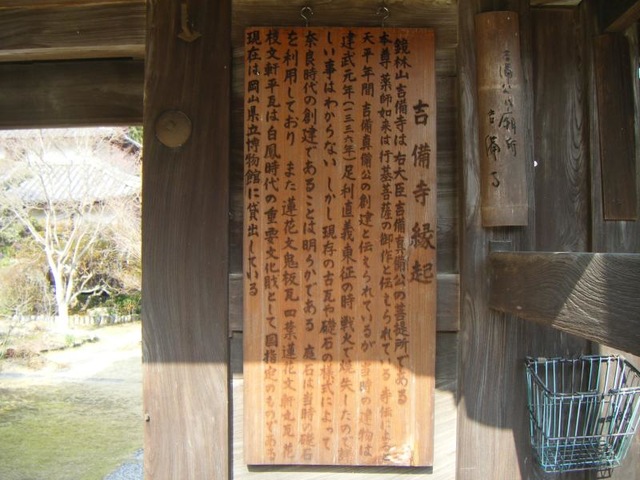 吉備寺縁起
鏡林山 吉備寺は 右大臣吉備真備公の菩提所である
本尊 薬師如来は行基菩薩の御作と伝えられている 寺伝によると
天平年間 吉備真備公の創建と伝えられているが 当時の建物は
建武元年(一三三六年)足利直義東征の時 戦火で焼失したので詳
しい事はわからない しかし現存の古瓦や礎石の様式によって
奈良時代の創建であることは明らかである 庭石は当時の礎石
を利用しており また蓮花文鬼板瓦 四葉蓮花文軒丸瓦 花
枝文軒平瓦は白鳳時代の重要文化財として国指定のものである
現在は岡山県立博物館に貸出している
吉備公の廟所
吉備寺